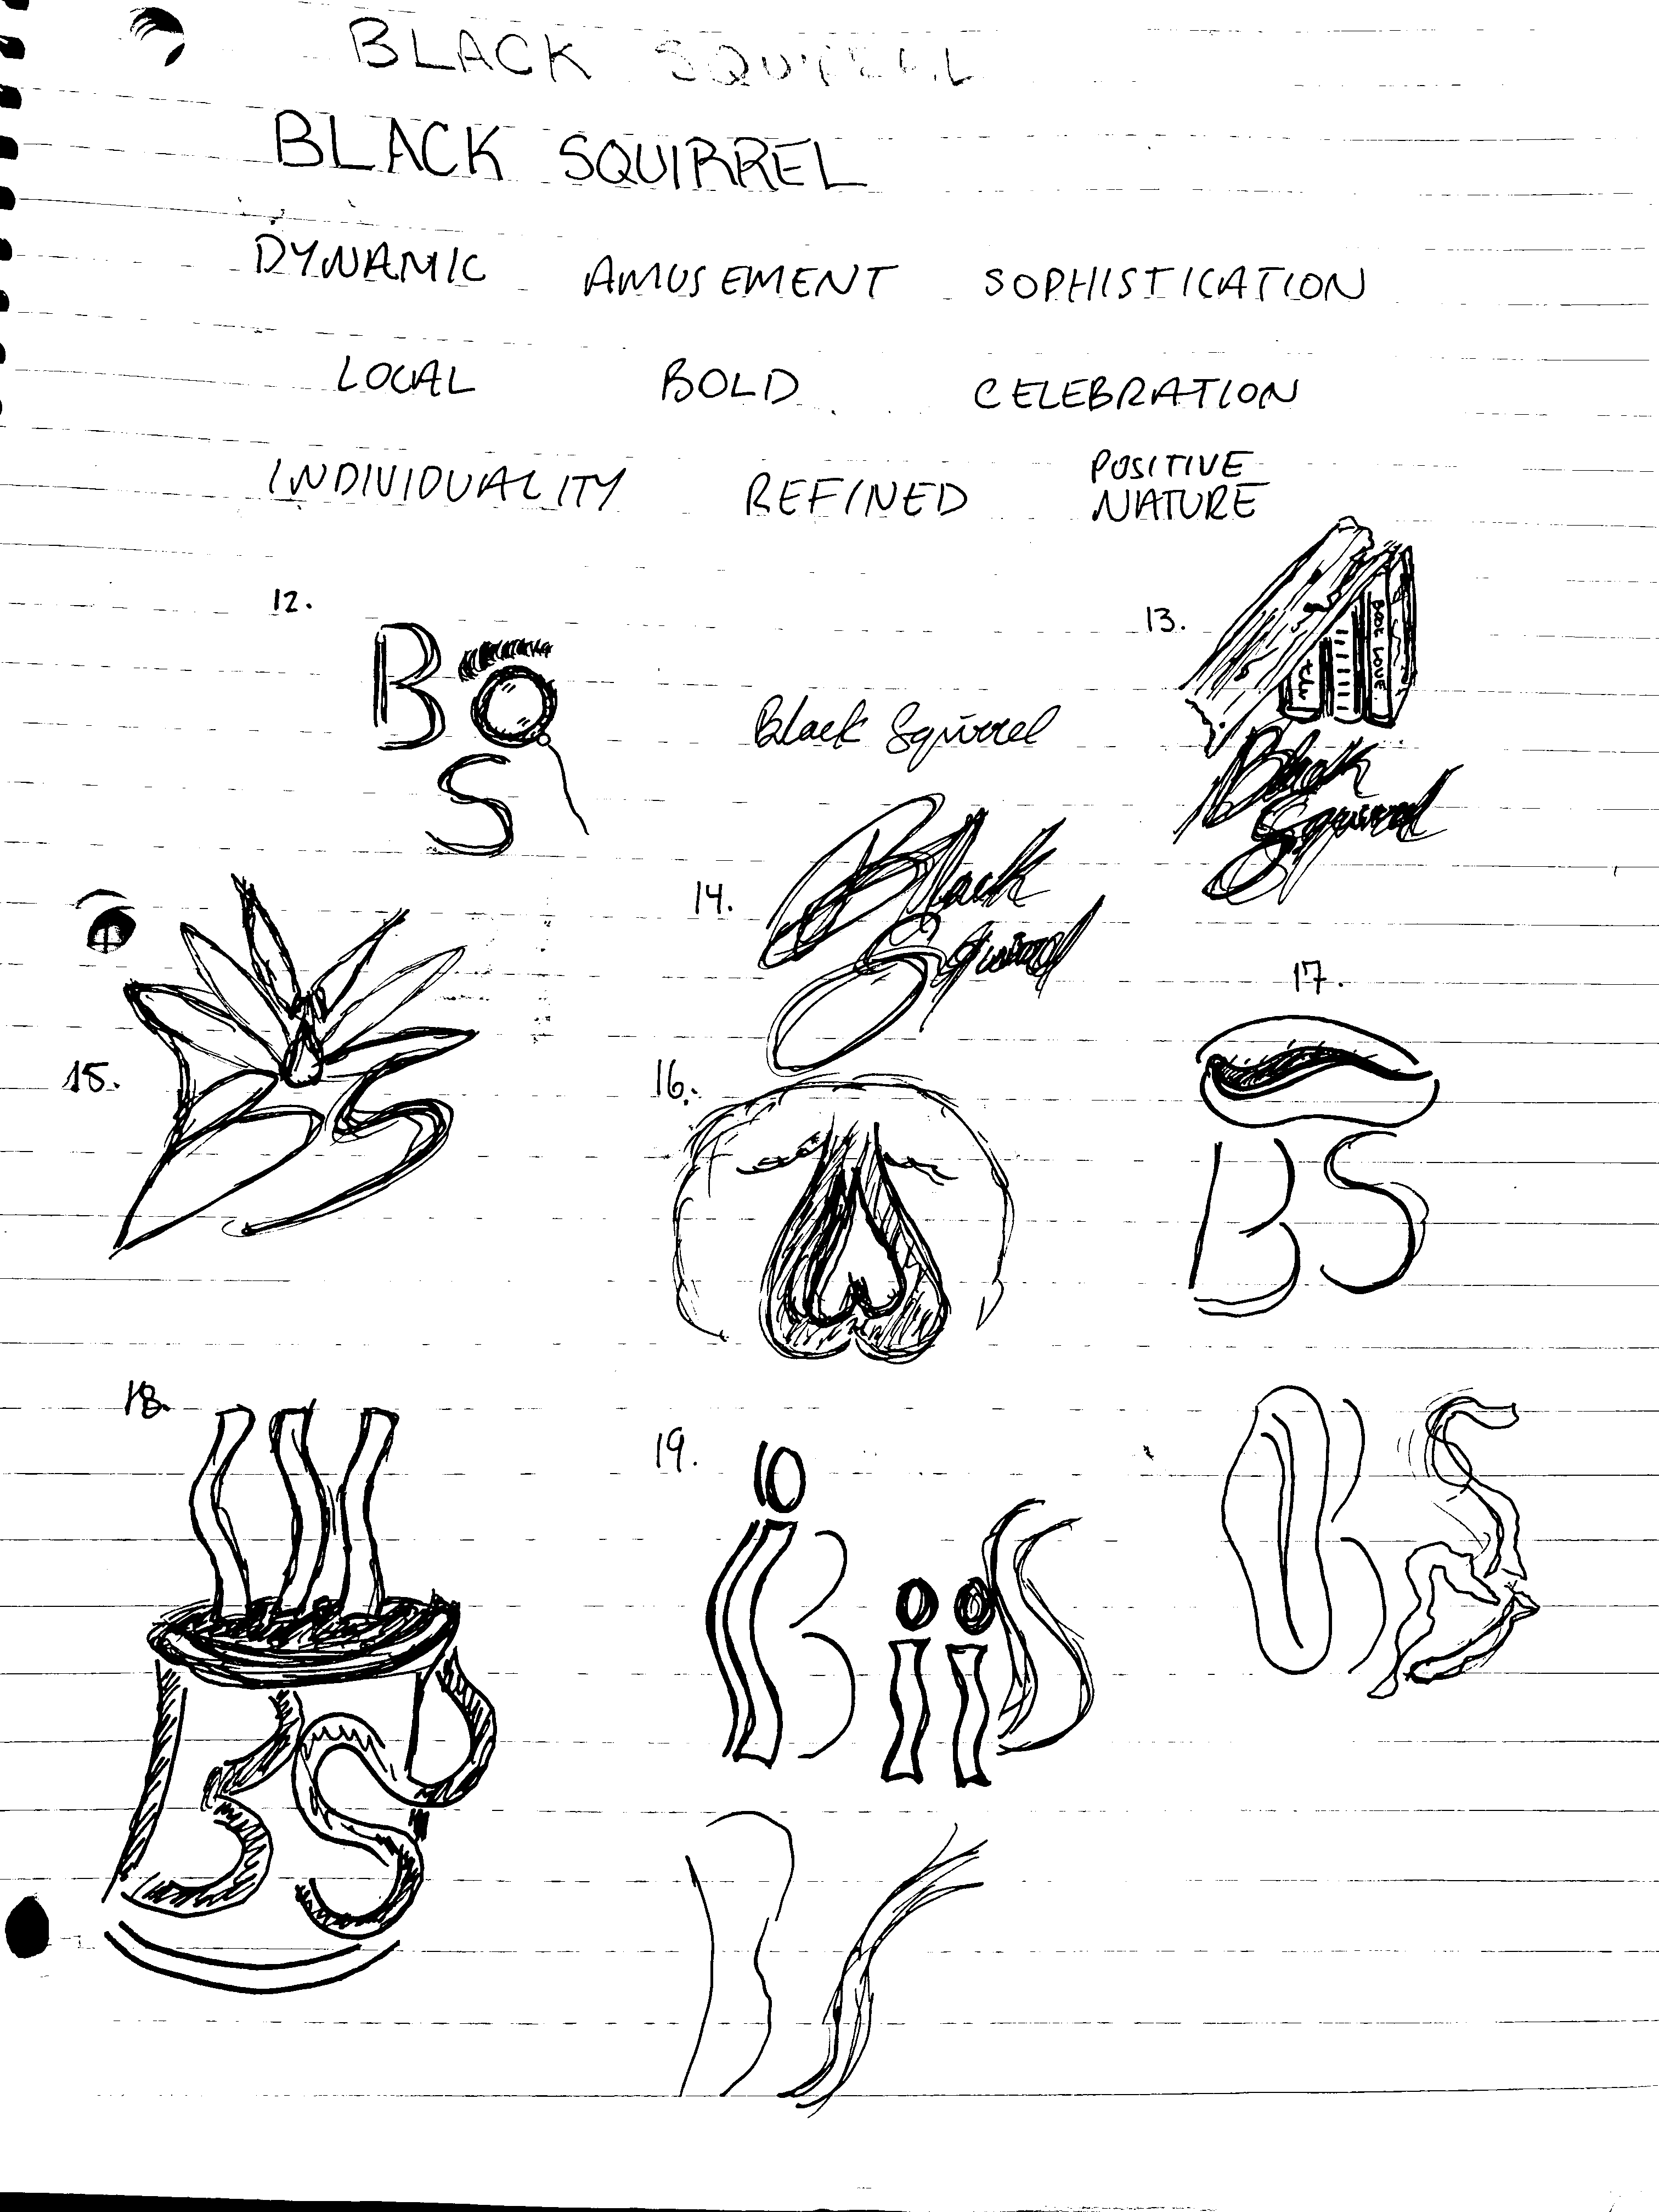 BLACK SQUIRREL
BLACK SQUIRREL
DYNAMIC AMUSEMENT SOPHISTICATION
LOCAL BOLD CELEBRATION
INDIVIDUALITY REFINED POSITIVE NATURE
12.
B
S
Black Squirrel
13.
BOOK LOVE
Black
Squirrel
14.
Black
Squirrel
15.
BS
16.
17.
BS
18.
BS
19.
BiiS
BS
BS